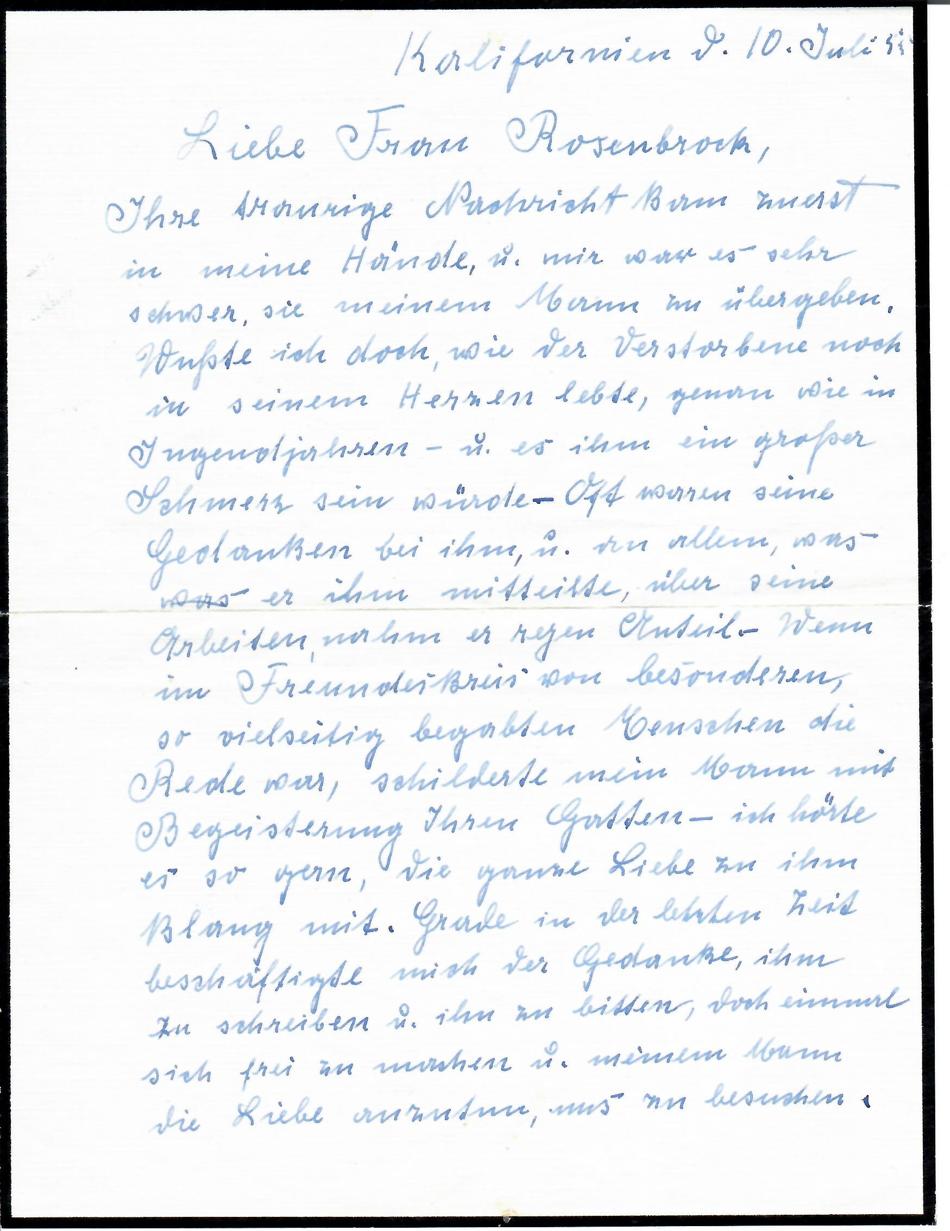 Kalifornien d. 10. Juli 55
Liebe Frau Rosenbrock,
Ihre traurige Nachricht kam zuerst
in meine Hände, u. mir war es sehr
schwer, sie meinem Mann zu übergeben.
Wußte ich doch, wie der Verstorbene noch
in seinem Herzen lebte, genau wie in
Jugendjahren – u. es ihm ein großer
Schmerz sein würde – Oft waren seine
Gedanken bei ihm, u. an allem, was
was er ihm mitteilte, über seine
Arbeiten, nahm er regen Anteil. – Wenn
im Freundeskreis von besonderen,
so vielseitig begabten Menschen die
Rede war, schilderte mein Mann mit
Begeisterung Ihren Gatten – ich hörte
es so gern, die ganze Liebe zu ihm
klang mit. Grade in der letzten Zeit
beschäftigte mich der Gedanke, ihm
zu schreiben u. ihn zu bitten, doch einmal
sich frei zu machen u. meinem Mann
die Liebe anzutun, uns zu besuchen.